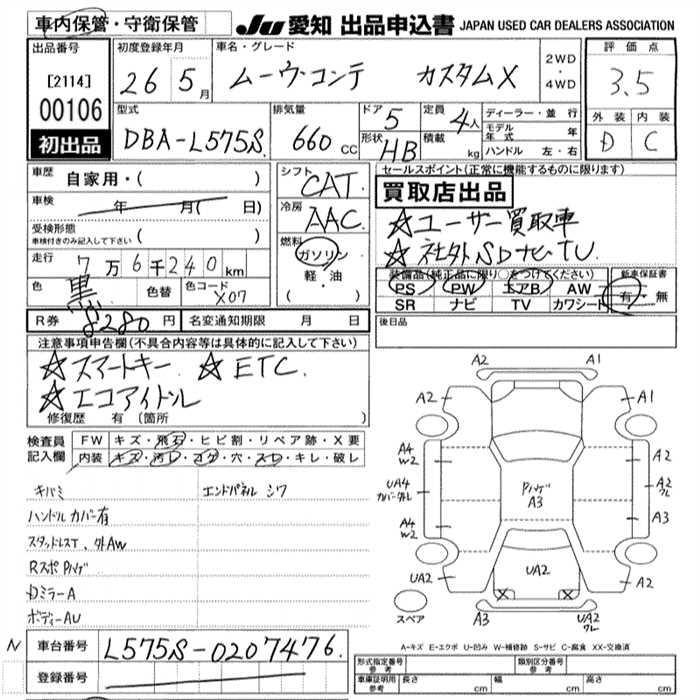 車内保管・守衛保管 JU 愛知 出品申込書 JAPAN USED CAR DEALERS ASSOCIATION
出品番号 初度登録年月 車名・グレード 2WD・4WD 評価点
[2114] 26 5月 ムーヴコンテ カスタムX 3.5
00106 型式 排気量 ドア 5 定員 4人 ディーラー・並行 外装 内装
初出品 DBA-L575S 660cc 形状 HB 積載 kg モデル年式 年 D C
ハンドル 左・右
車歴 自家用・( ) シフト CAT セールスポイント(正常に機能するものに限ります)
車検 年 月( 日) 冷房 AAC 買取店出品
受検形態 車検付きのみ記入して下さい ( ) ☆ユーザー買取車
走行 7万6千240km 燃料 ガソリン・軽・油 ( ) ☆社外SDナビTV
色 黒 色替 色コード X07 装備品(純正品に限り○をつけてください) 新車保証書
PS PW エアB AW 有・無
SR ナビ TV カワシート
R券 8280円 名変通知期限 月 日 後日品
注意事項申告欄(不具合内容等は具体的に記入して下さい)
☆スマートキー ☆ETC
☆エコアイドル
修復歴 有 (箇所 )
検査員記入欄 FW キズ・飛石・ヒビ割・リペア跡・X要
内装 キズ・汚レ・コゲ・穴・スレ・キレ・破レ
キバミ エンドパネル シワ
ハンドルカバー有
スタッドレスT、外AW
RスポPハゲ
Dミラー A
ボディーAU
A2 A1
A2 A1
A4 W2 A2
UA4 カバー外レ Pハゲ A3 A2 ワレ
A4 W2 A3
UA2 UA2 A2
スペア A3 UA2 ワレ
A-キズ E-エクボ U-凹み W-補修跡 S-サビ C-腐食 XX-交換済
N 車台番号 L575S-0207476
登録番号
形式指定番号 参考 類別区分番号 参考
車庫証明用 参考 長さ cm 幅 cm 高さ cm